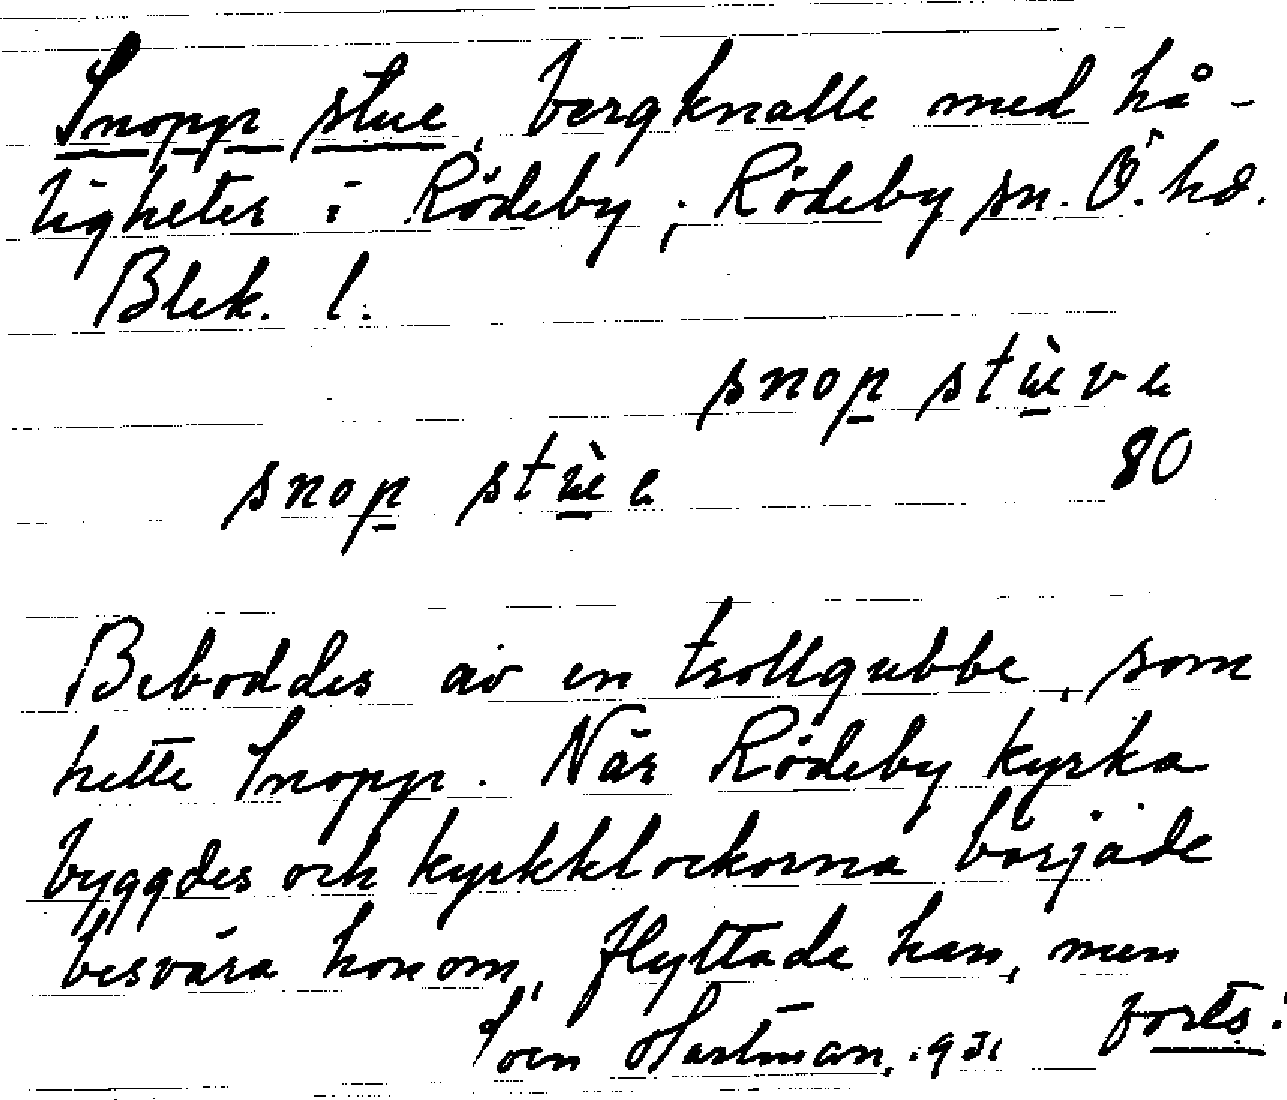 Snopp stue, bergknalle med hå-
ligheter i Rödeby; Rödeby sn. Ö. hd.
Blek. l.
snop stùeve
80
snop stùe
Beboddes av en trollgubbe, som
hette Snopp. När Rödeby kyrka
byggdes och kyrkklockorna började
besvära honom, flyttade han, men
forts.
Sven Hartman, 1931